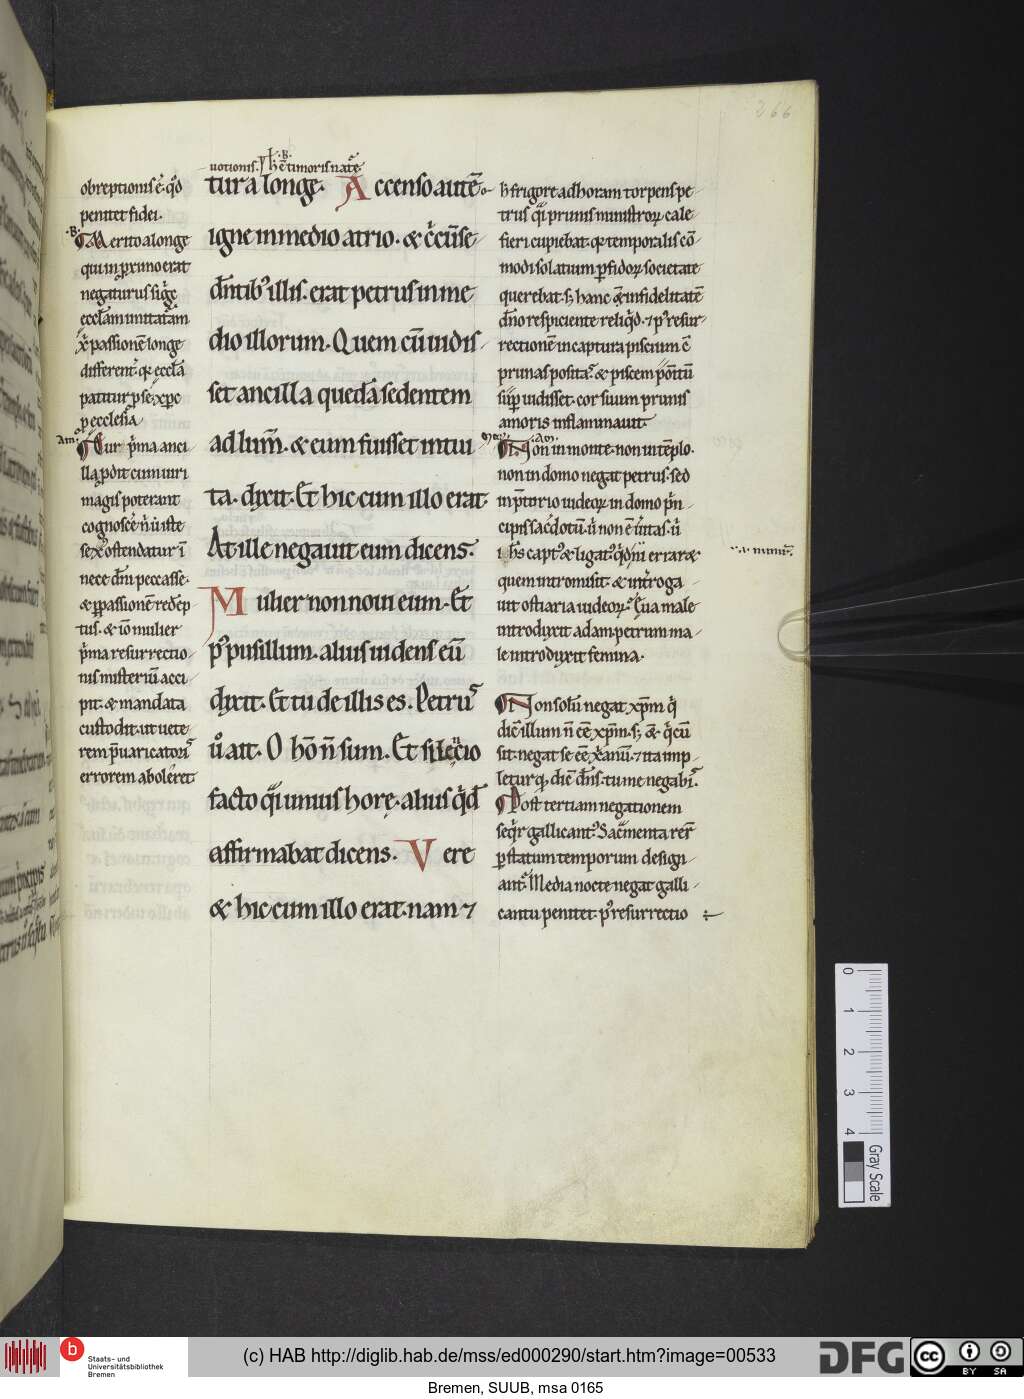 266
uotionis. hͨ ē timoris nat̄e
obreptionis ē. qd̄
penitet fidei.
.B. Merito a longe
qui in pruno erat
negaturus sig̅e
eccl̄am imitat̄am
xp̄i passionē longe
different̄. q̄ eccl̄a
patitur p se xp̄c
p ecclesia
Am̄. Cur p̄ma anci
lla p̄dit cum uiri
magis poterant
cognoscē n̄ ut iste
sex̄ ostendatur ī
nece dn̄i peccasse.
& p passionē redēp
tus. & iō mulier
p̄ma resurrectio
nis misteriū acci
pit & mandata
custodit. ut uete
rem p̄uaricationis
errorem aboleret
tura longe. Accenso autē
igne in medio atrio. & c̄cūse
dn̄tib; illis. erat petrus in me
dio illorum. Quem cū uidis
set ancilla quedā sedentem
ad lum̄. & eum fuisset intui
ta. dixit. Et hic cum illo erat.
At ille negauit eum dicens.
Mulier non noui eum. Et
p' pusillum. alius uidens eū
dixit. Et tu de illis es. Petrus
ū ait. O hō n̄ sum. Et
facto q̄i unius hore. alius q̄d
affirmabat dicens. Vere
& hic cum illo erat. nam 7
h frigore ad horam torpens pe
trus q̄i prunis ministroꝝ cale
fieri cupiebat. q̄ temporalis cō
modi solatium pfidoꝝ societate
querebat. s; hanc & infidelitatē
dn̄o respiciente reliq̄d. 7 p' resur
rectionē in captura piscium ē
prunas posita. & piscem
sup uidisset. cor suum prunis
amoris inflammauit.
.Am. Non in monte. non in tēplo.
non in domo negat petrus. sed
in p̄torio iudeoꝝ in domo p̄n
cipis sac̄dotū. ū non ē u̅itas. ū
ih̄s capt' & ligat'. q̄dn̄i errar&
quem intromisit. & int̄roga
uit ostiaria iudeoꝝ. Eua male
introduxit adam. petrum ma
le introduxit femina.
Non solū negat xp̄m q̄
dic̄ illum n̄ eē xp̄m. s; & q̄ cū
sit. negat se eē xp̄ianū. 7 ita imp
letur q̄ dic̄ dn̄s. tu me negabis.
Post tertiam negationem
seq̄r gallicant'. Sac̄menta rer̄
p statum temporum desig
ant̄. Media nocte negat. galli
cantu penitet. p' resurrectio